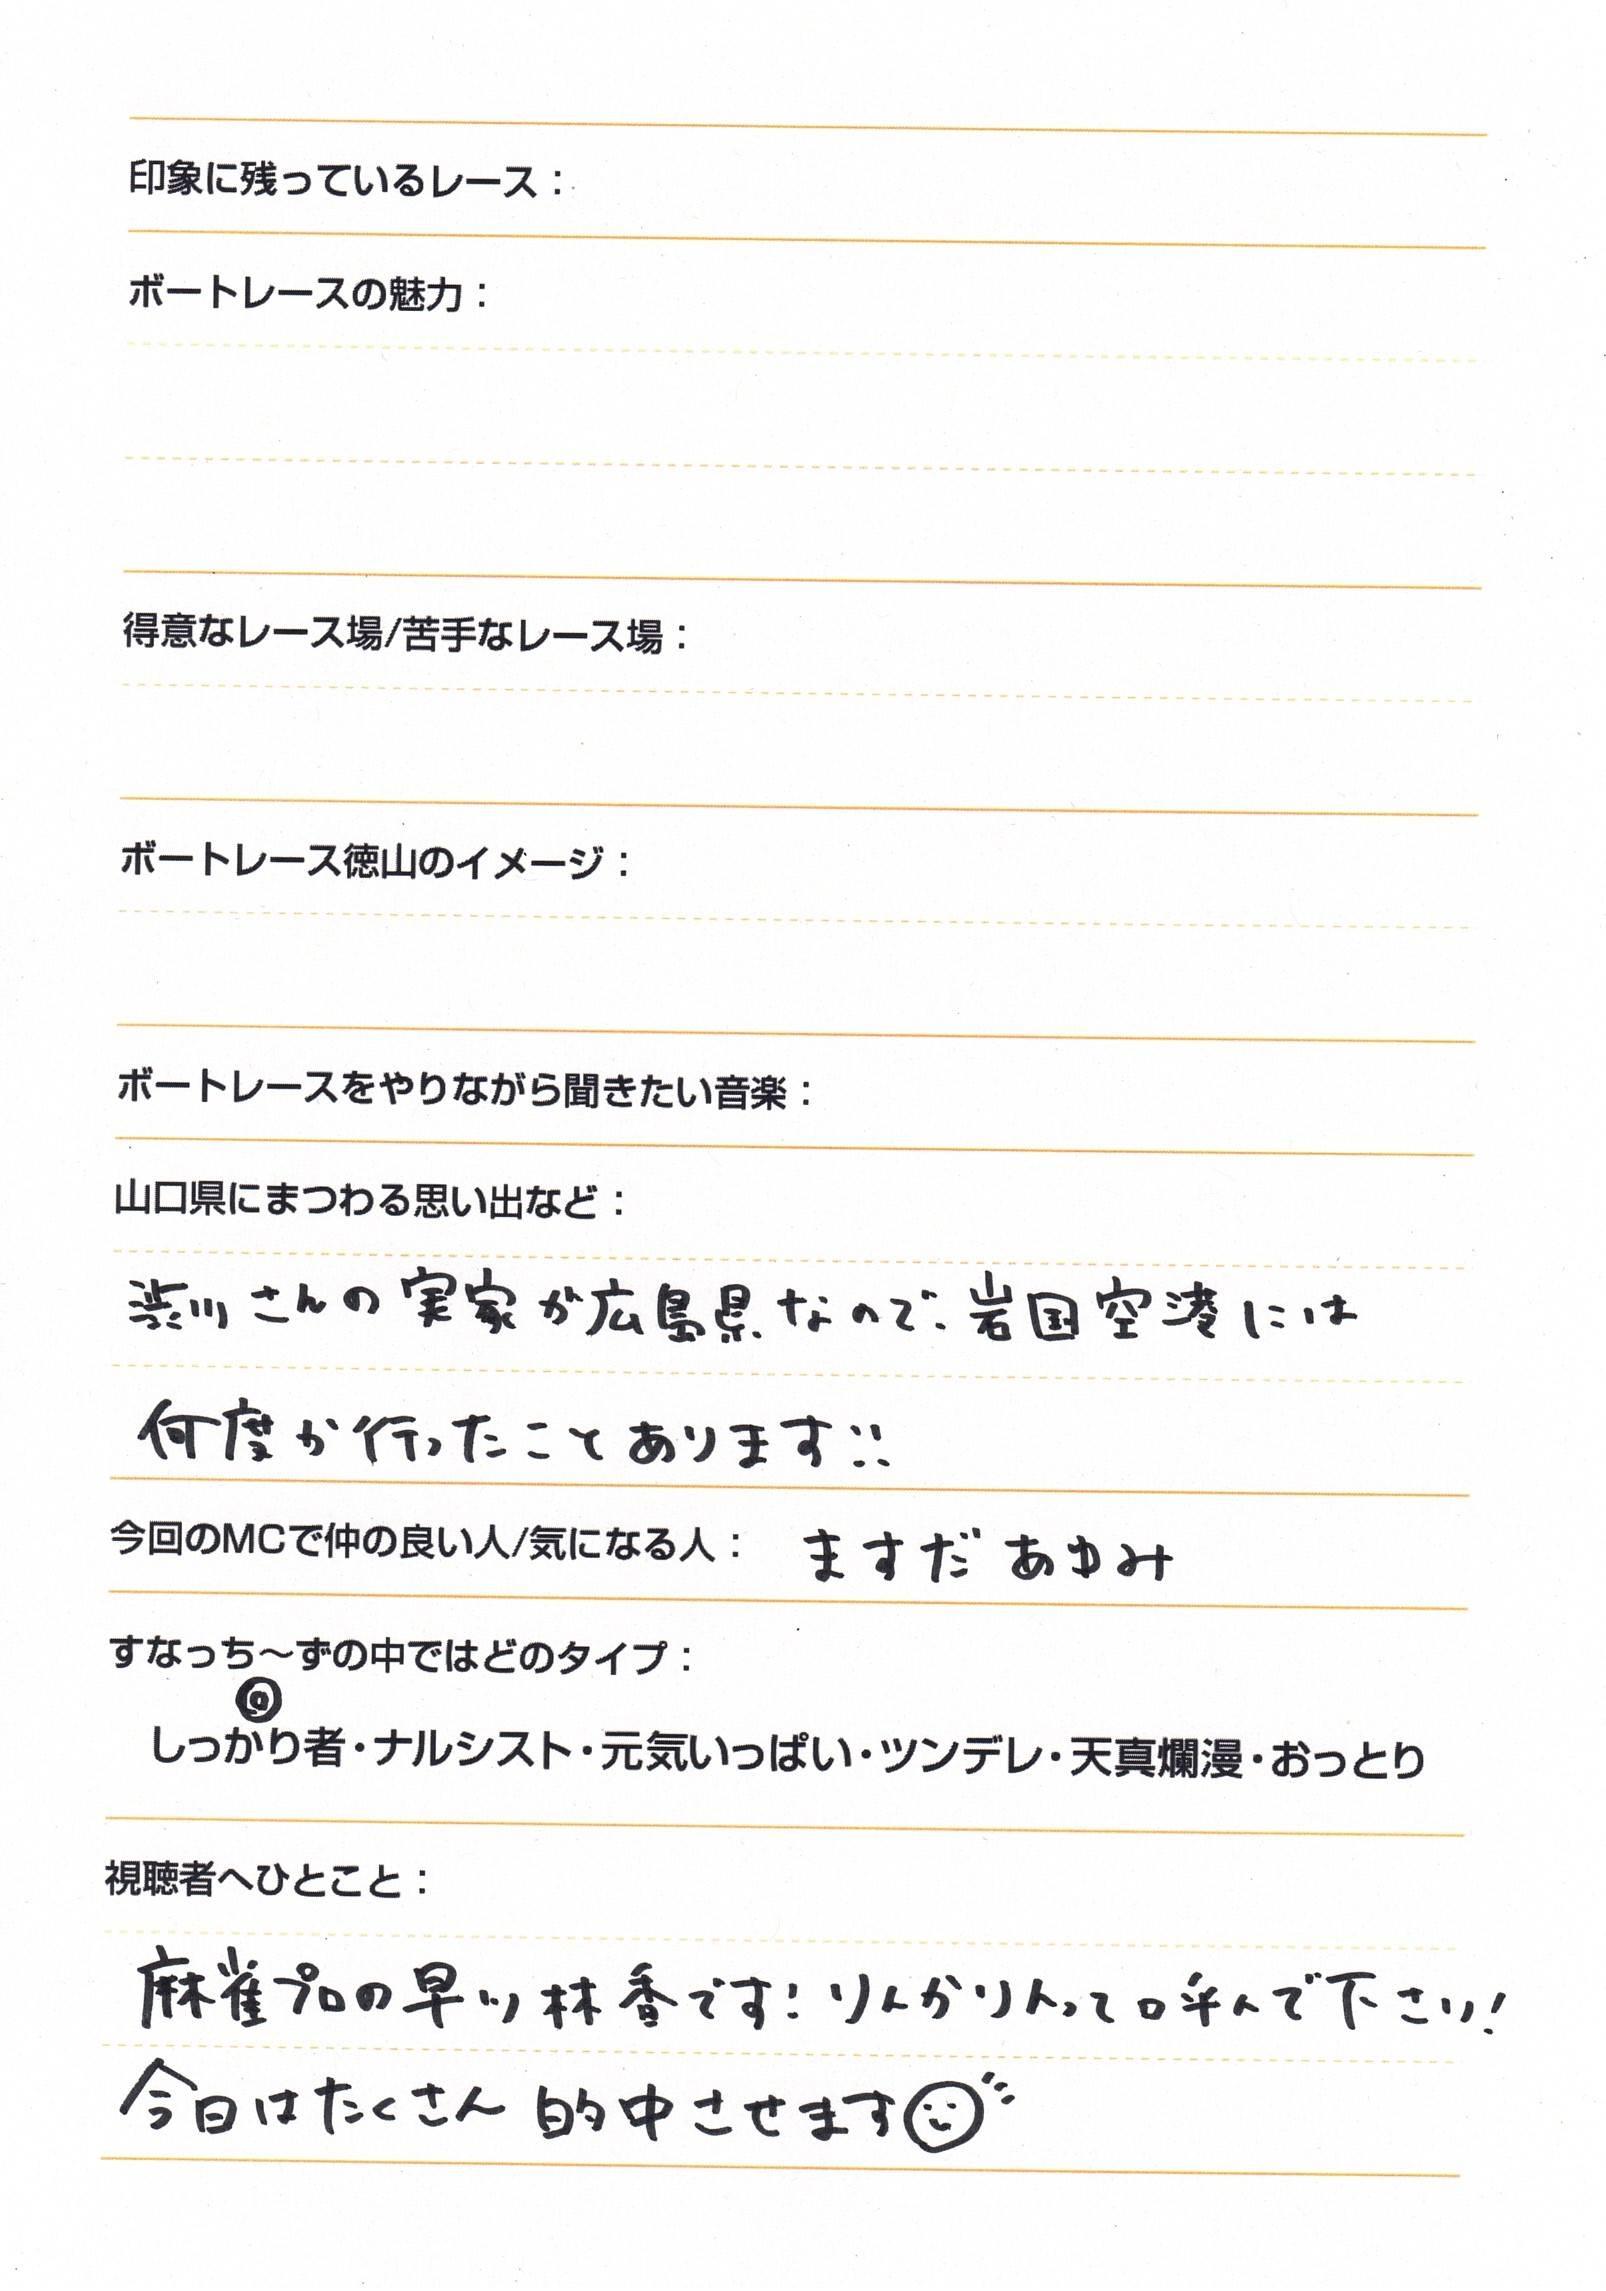 印象に残っているレース：
ボートレースの魅力：
得意なレース場/苦手なレース場：
ボートレース徳山のイメージ：
ボートレースをやりながら聞きたい音楽：
山口県にまつわる思い出など：
渋川さんの実家が広島県なので、岩国空港には
何度か行ったことあります!!
今回のMCで仲の良い人/気になる人： ますだあゆみ
すなっち～ずの中ではどのタイプ：
◎
しっかり者・ナルシスト・元気いっぱい・ツンデレ・天真爛漫・おっとり
視聴者へひとこと：
麻雀プロの早川林香です! りんかりんって呼んで下さい!
今日はたくさん的中させます